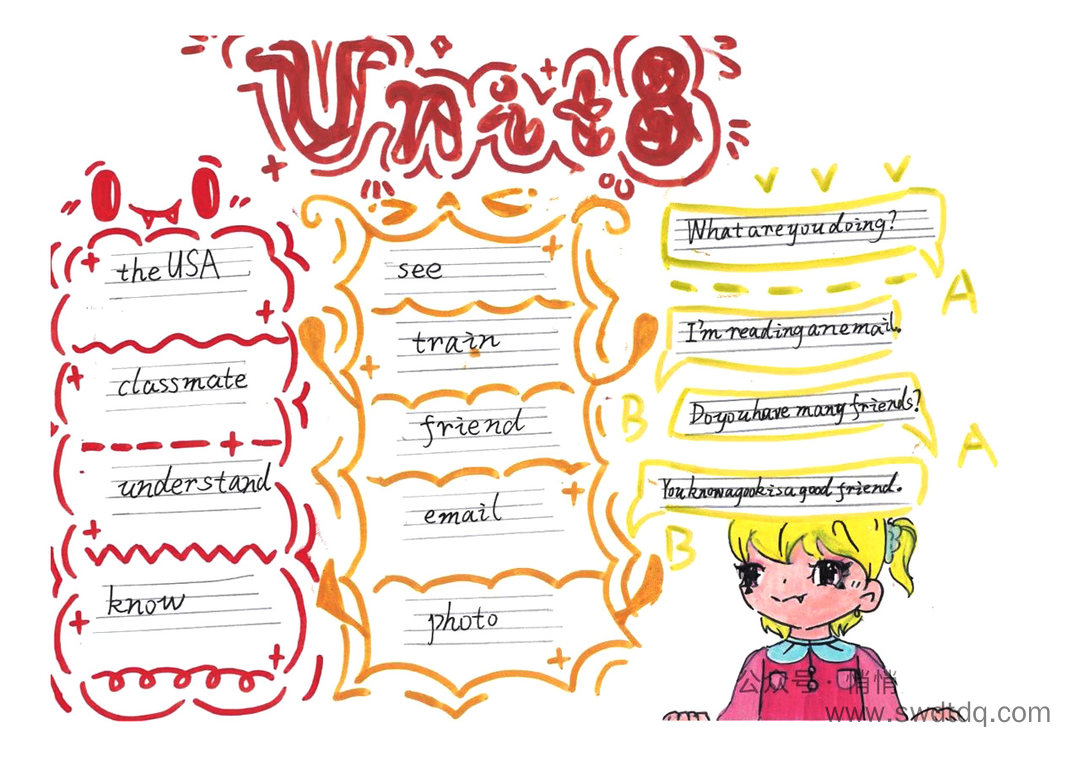 Unit8
the USA
classmate
understand
know
see
train
friend
email
photo
What are you doing?
A
I'm reading an email.
B
Do you have many friends?
A
You know a gook is a good friend.
B
公众号·悄悄
www.swdtdq.com